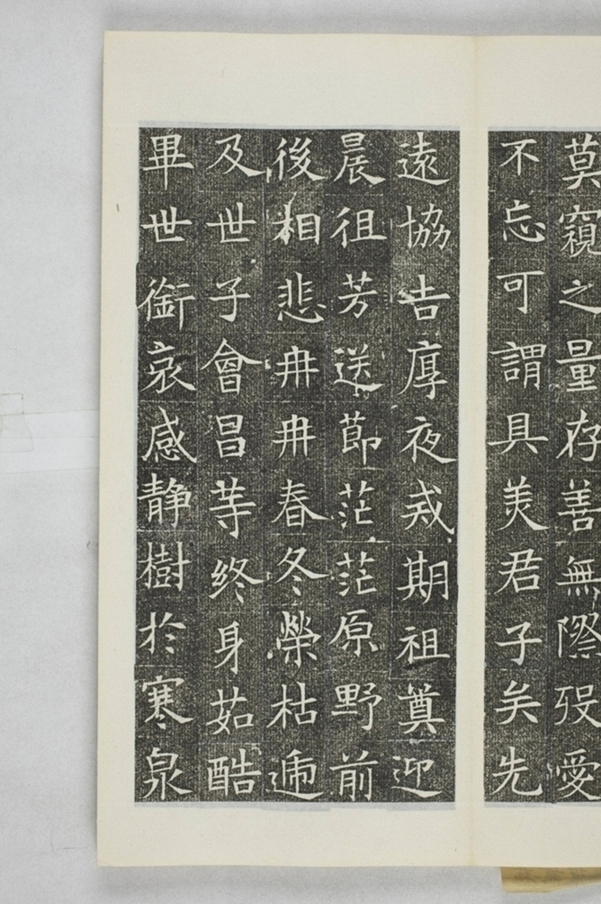 莫窺之量存善無際歿愛
不忘可謂具美君子矣先
遠協吉厚夜戒期祖奠迎
晨徂芳送節茫茫原野前
後相悲冉冉春冬榮枯遞
及世子會昌等終身茹酷
畢世銜哀感静樹於寒泉